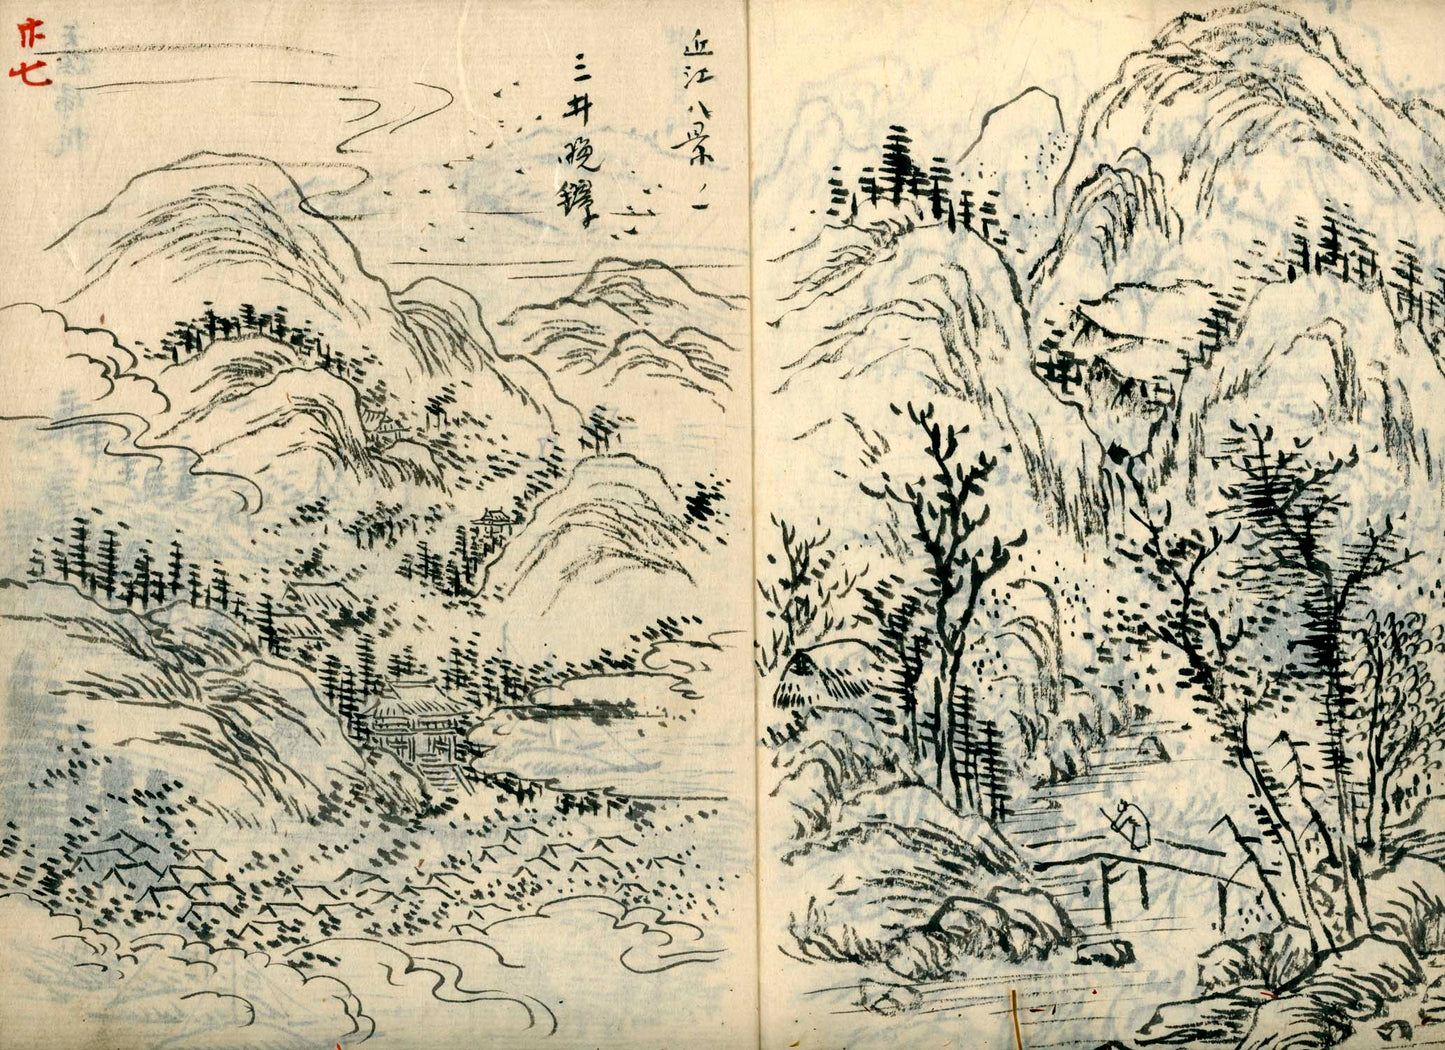 近江八景ノ一
三井晩鐘
廿七